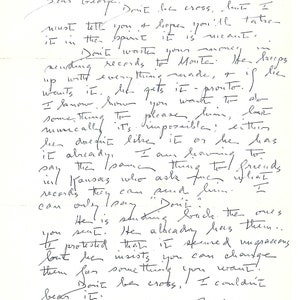 Dear George:
Don't be cross, but I
must tell you & hope you'll take
it in the spirit it is meant.
Don't waste your money in
sending records to Monte. He keeps
up with everything made, & if he
wants it, he gets it - pronto!
I know how you want to do
something to please him, but
musically it's impossible: either
he doesn't like it or he has
it already. I am having to
say the same thing to friends
in Kansas who ask me what
records they can send him. I
can only say "Don't".
He is sending back the ones
you sent. He already has them.
I protested that it seemed ungracious
but he insists you can change
them for something you want.
Don't be cross, I couldn't
bear it.